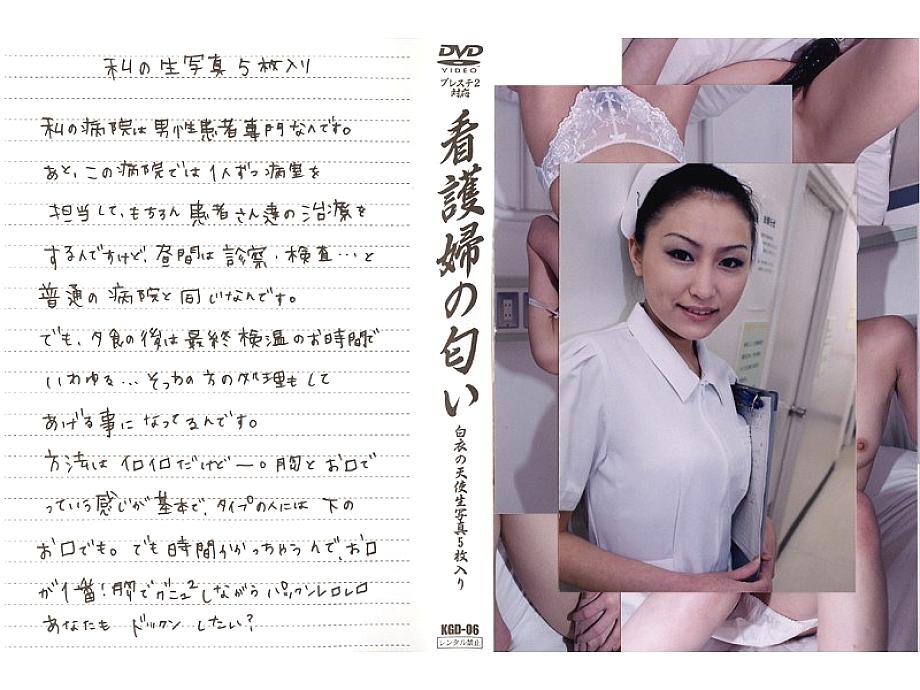 私の生写真5枚入り
私の病院は男性患者専門なんです。
あと、この病院では1人ずつ病室を
担当して、もちろん患者さん達の治療を
するんですけど、昼間は診察・検査…と
普通の病院と同じなんです。
でも、夕食の後は最終検温のお時間で
いわゆる…そっちの方の処理もして
あげる事になってるんです。
方法はイロイロだけどー。胸とお口で
っていう感じが基本で、タイプの人には下の
お口でも。でも時間かかっちゃうんで、お口
が1番!胸でグニュ2しながらパックンレロレロ
あなたもドックンしたい?
DVD
VIDEO
プレステ2
対応
看護婦の匂い
白衣の天使生写真5枚入り
KGD-06
レンタル禁止